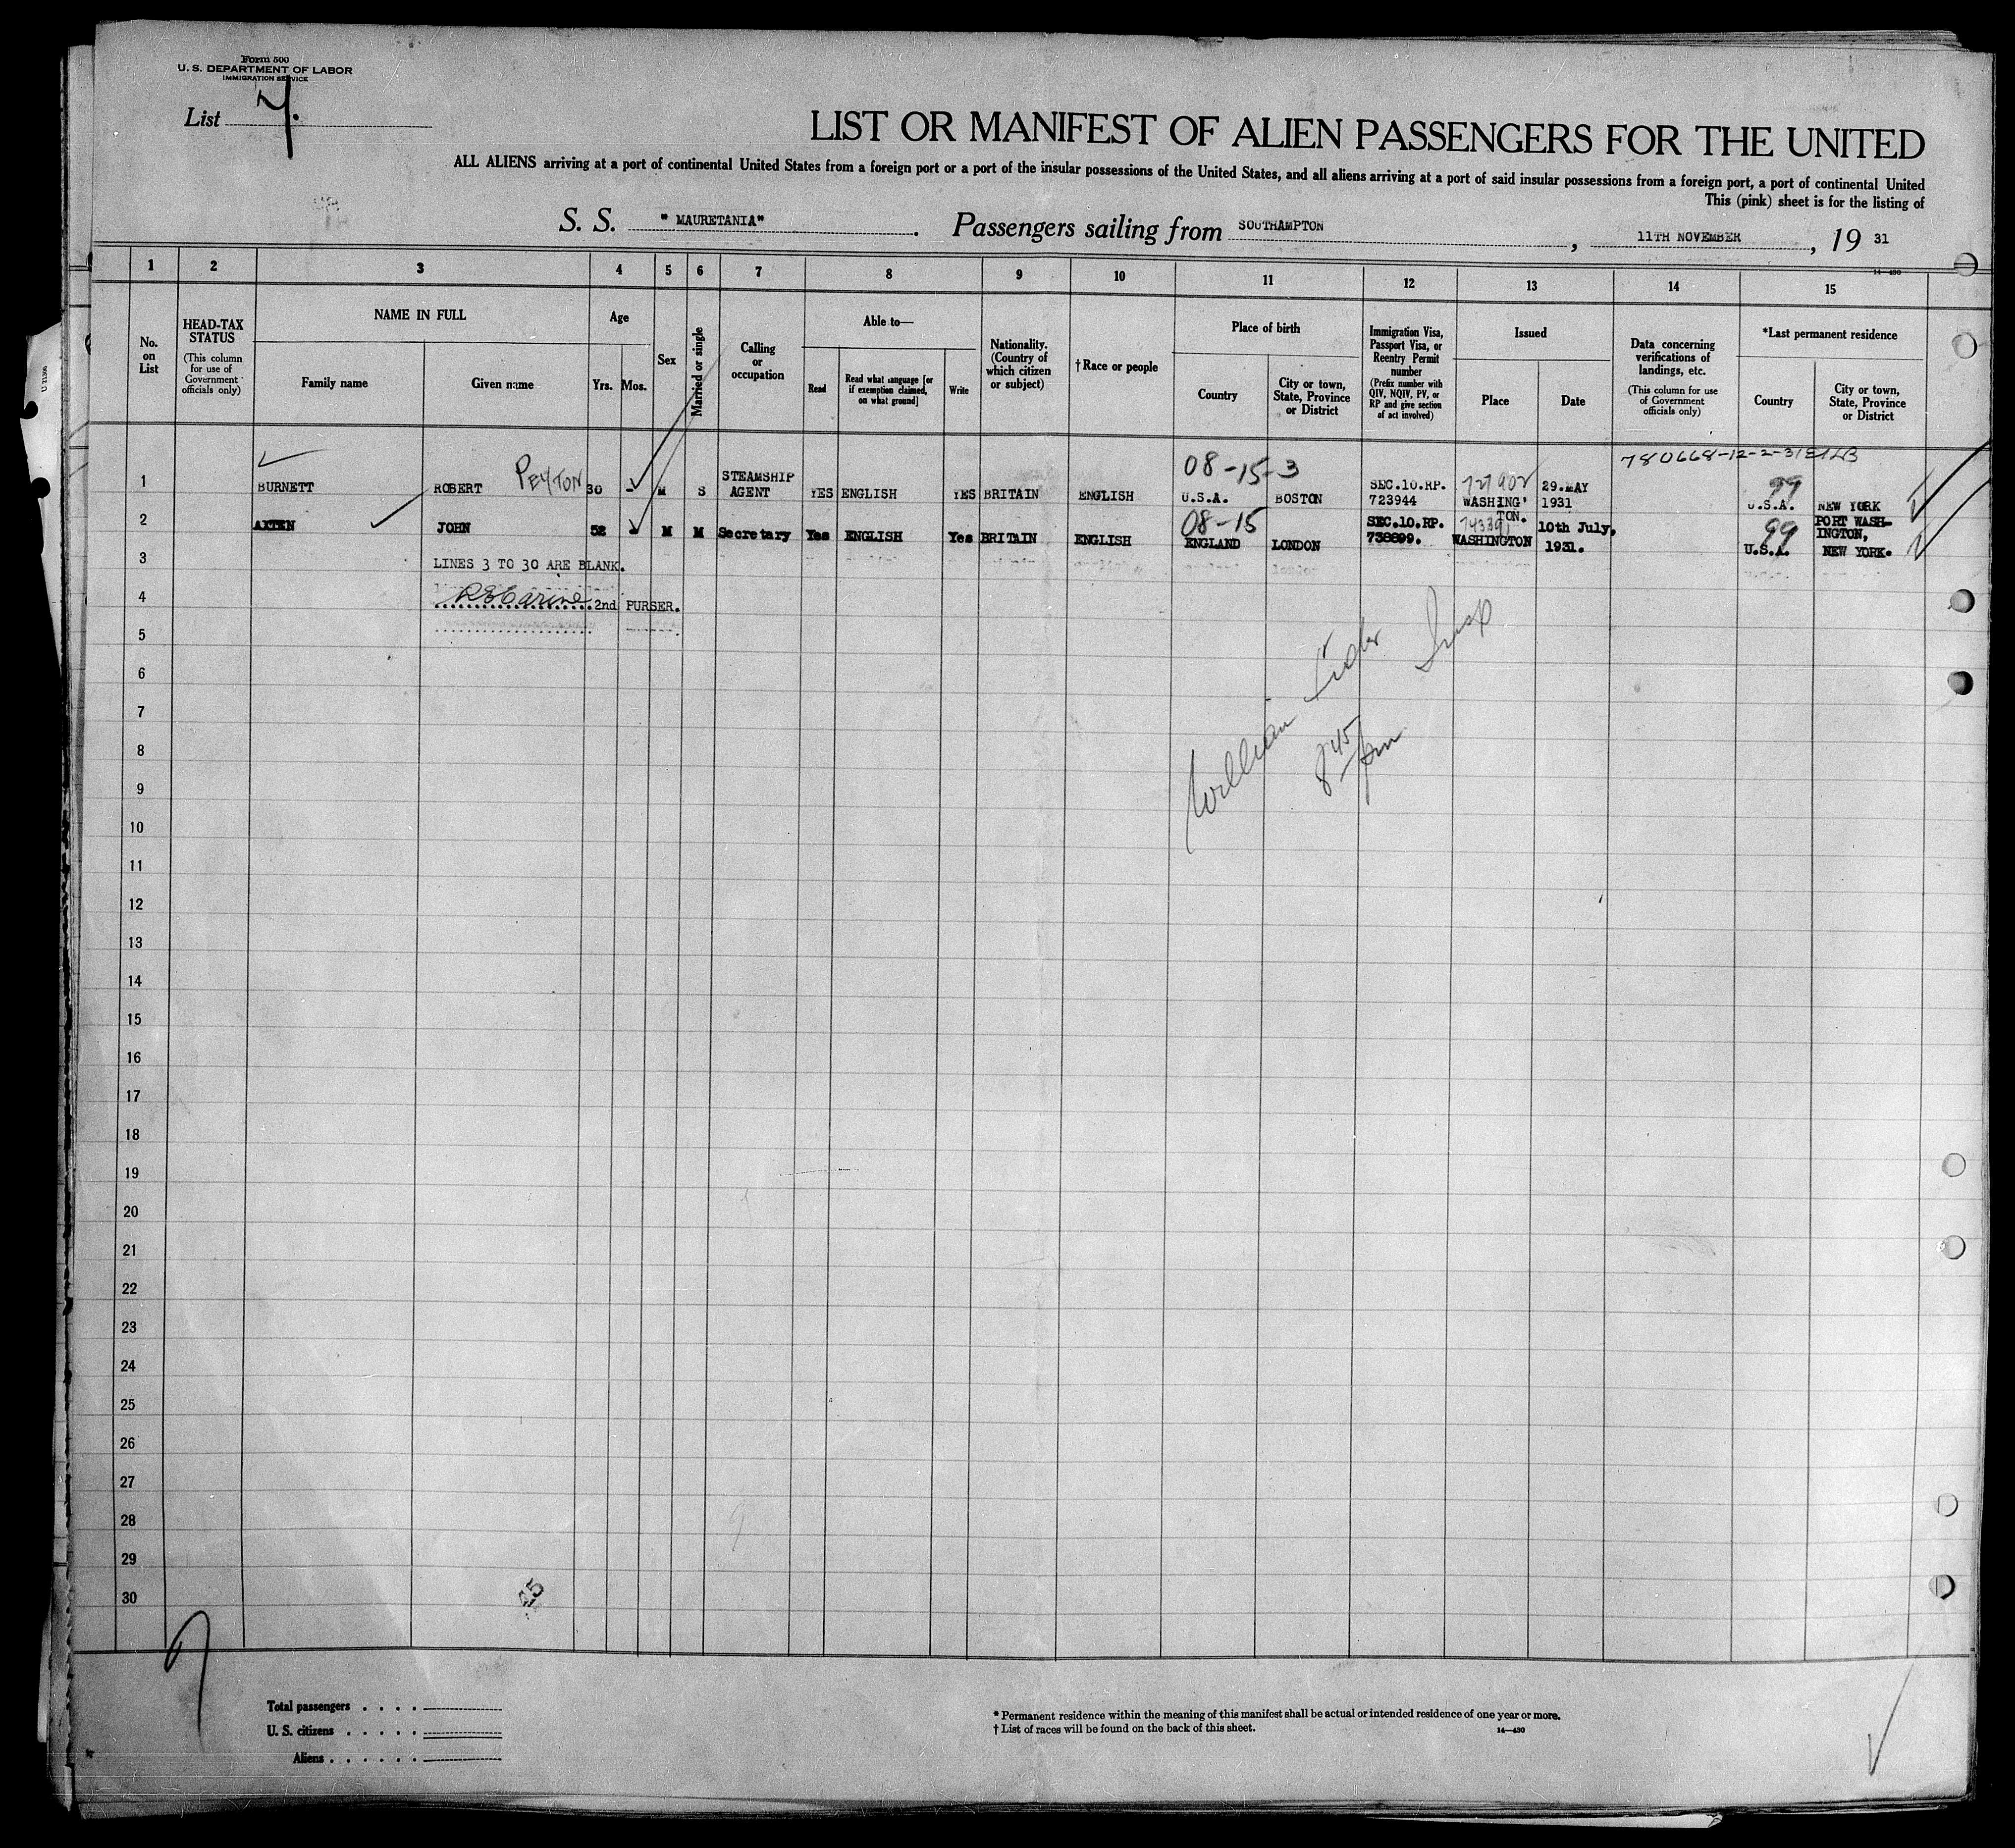 Form 500
U. S. DEPARTMENT OF LABOR
IMMIGRATION SERVICE
List 7.
LIST OR MANIFEST OF ALIEN PASSENGERS FOR THE UNITED
ALL ALIENS arriving at a port of continental United States from a foreign port or a port of the insular possessions of the United States, and all aliens arriving at a port of said insular possessions from a foreign port, a port of continental United
This (pink) sheet is for the listing of
S. S. "MAURETANIA". Passengers sailing from SOUTHAMPTON, 11TH NOVEMBER, 19 31
14—430
1 2 3 4 5 6 7 8 9 10 11 12 13 14 15
No. on List
HEAD-TAX STATUS
(This column for use of Government officials only)
NAME IN FULL
Family name
Given name
Age
Yrs. Mos.
Sex
Married or single
Calling or occupation
Able to—
Read
Read what language [or if exemption claimed, on what ground]
Write
Nationality. (Country of which citizen or subject)
†Race or people
Place of birth
Country
City or town, State, Province or District
Immigration Visa, Passport Visa, or Reentry Permit number
(Prefix number with QIV, NQIV, PV, or RP and give section of act involved)
Issued
Place
Date
Data concerning verifications of landings, etc.
(This column for use of Government officials only)
*Last permanent residence
Country
City or town, State, Province or District
08-15-3
780668-12-2-31
1 BURNETT ROBERT PEYTON 30 - M S STEAMSHIP AGENT YES ENGLISH YES BRITAIN ENGLISH U.S.A. BOSTON SEC.10.RP. 723944 727902 WASHING'TON. 29.MAY 1931 99 U.S.A. NEW YORK
08-15
2 AXTEN JOHN 52 - M M Secretary Yes ENGLISH Yes BRITAIN ENGLISH ENGLAND LONDON SEC.10.RP. 738899. WASHINGTON 10th July, 1931. 99 U.S.A. PORT WASHINGTON, NEW YORK.
3 LINES 3 TO 30 ARE BLANK.
4 2nd PURSER.
5
6
William Insp
7
8 8 45 pm
9
10
11
12
13
14
15
16
17
18
19
20
21
22
23
24
25
26
27
28
29
30
Total passengers . . . .
U. S. citizens . . . . .
Aliens . . . . . .
* Permanent residence within the meaning of this manifest shall be actual or intended residence of one year or more.
† List of races will be found on the back of this sheet.
14—430